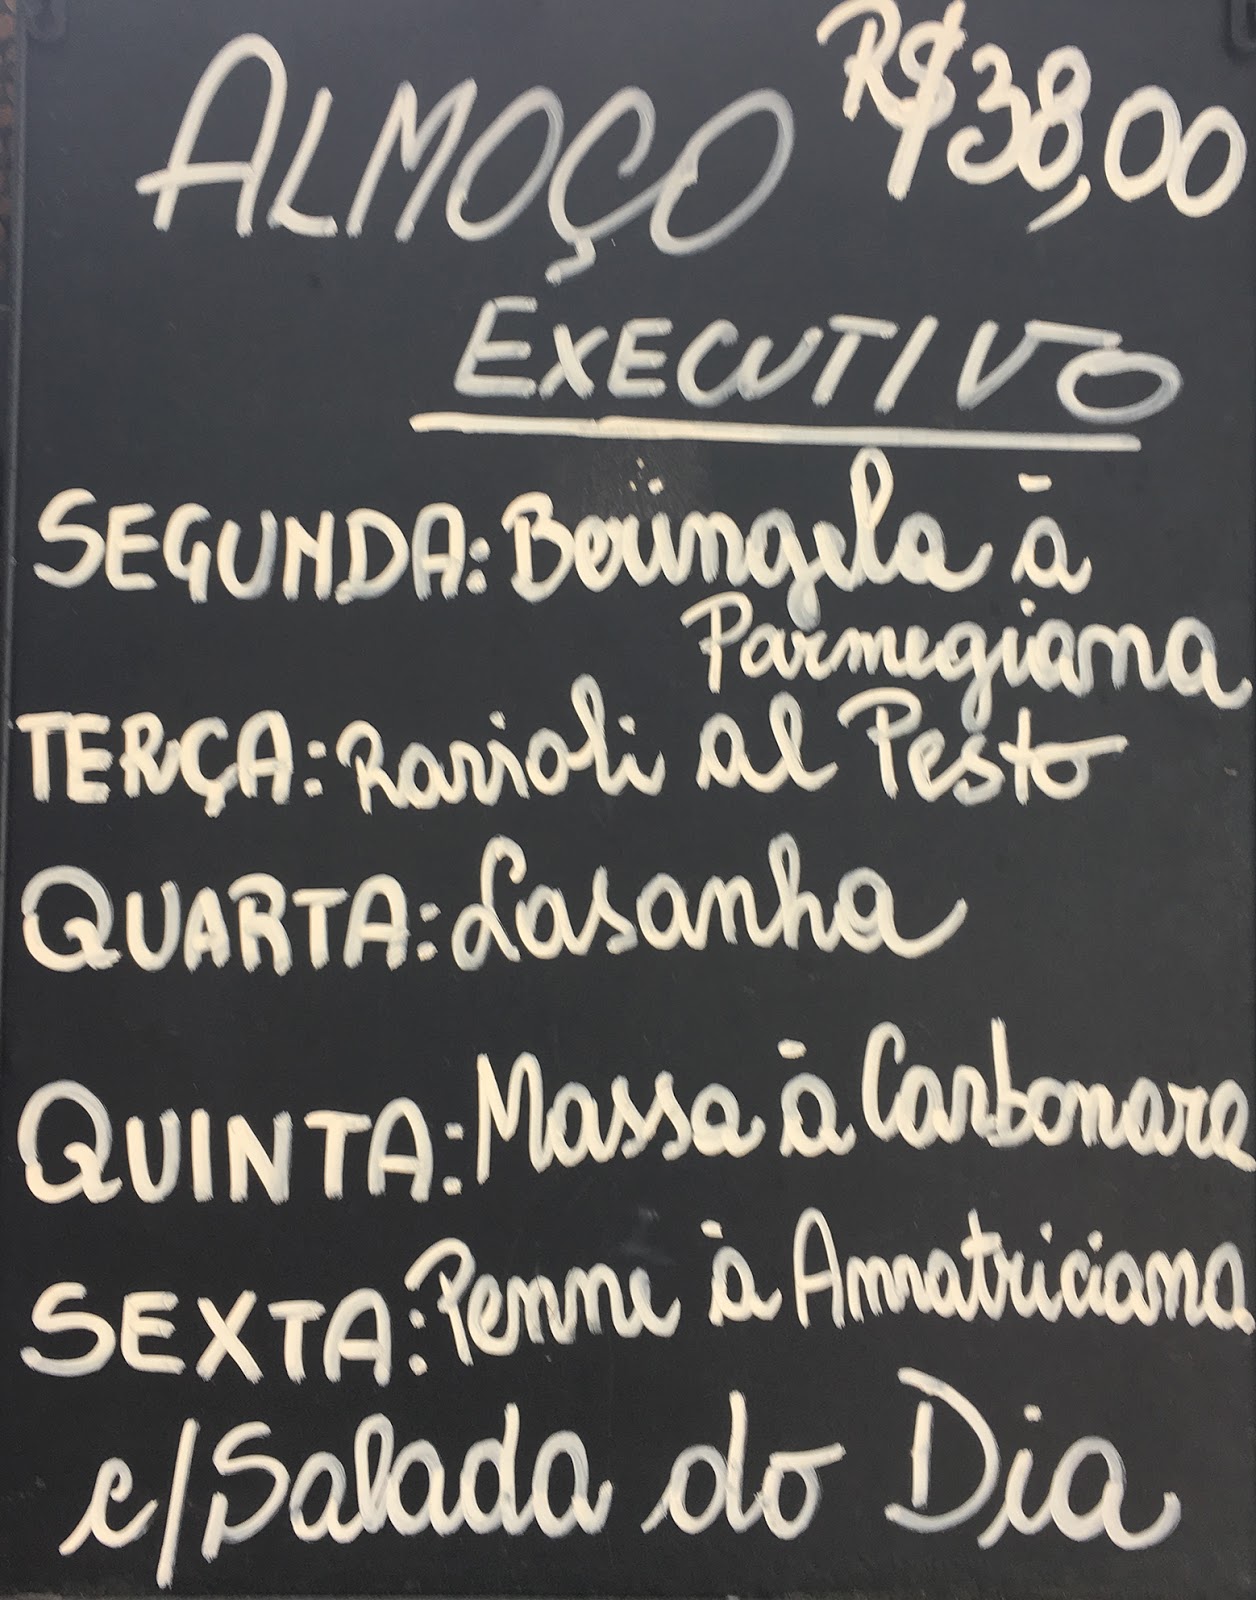 ALMOÇO R$38,00
EXECUTIVO
SEGUNDA: Beringela à
Parmegiana
TERÇA: Ravioli al Pesto
QUARTA: Lasanha
QUINTA: Massa à Carbonara
SEXTA: Penne à Amatriciana
c/Salada do Dia